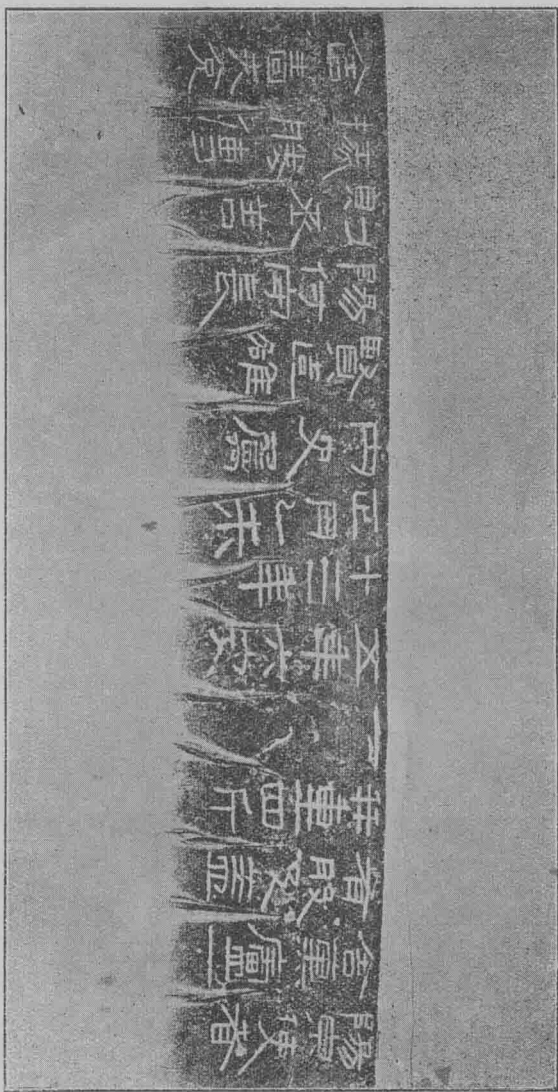 陽泉使者
舍熏盧一
有般及蓋
并重四斤
一
五年六安
十三年
正月乙未
內史屬
賢造雒
陽付守長
則丞善
掾勝傳
舍嗇夫兌